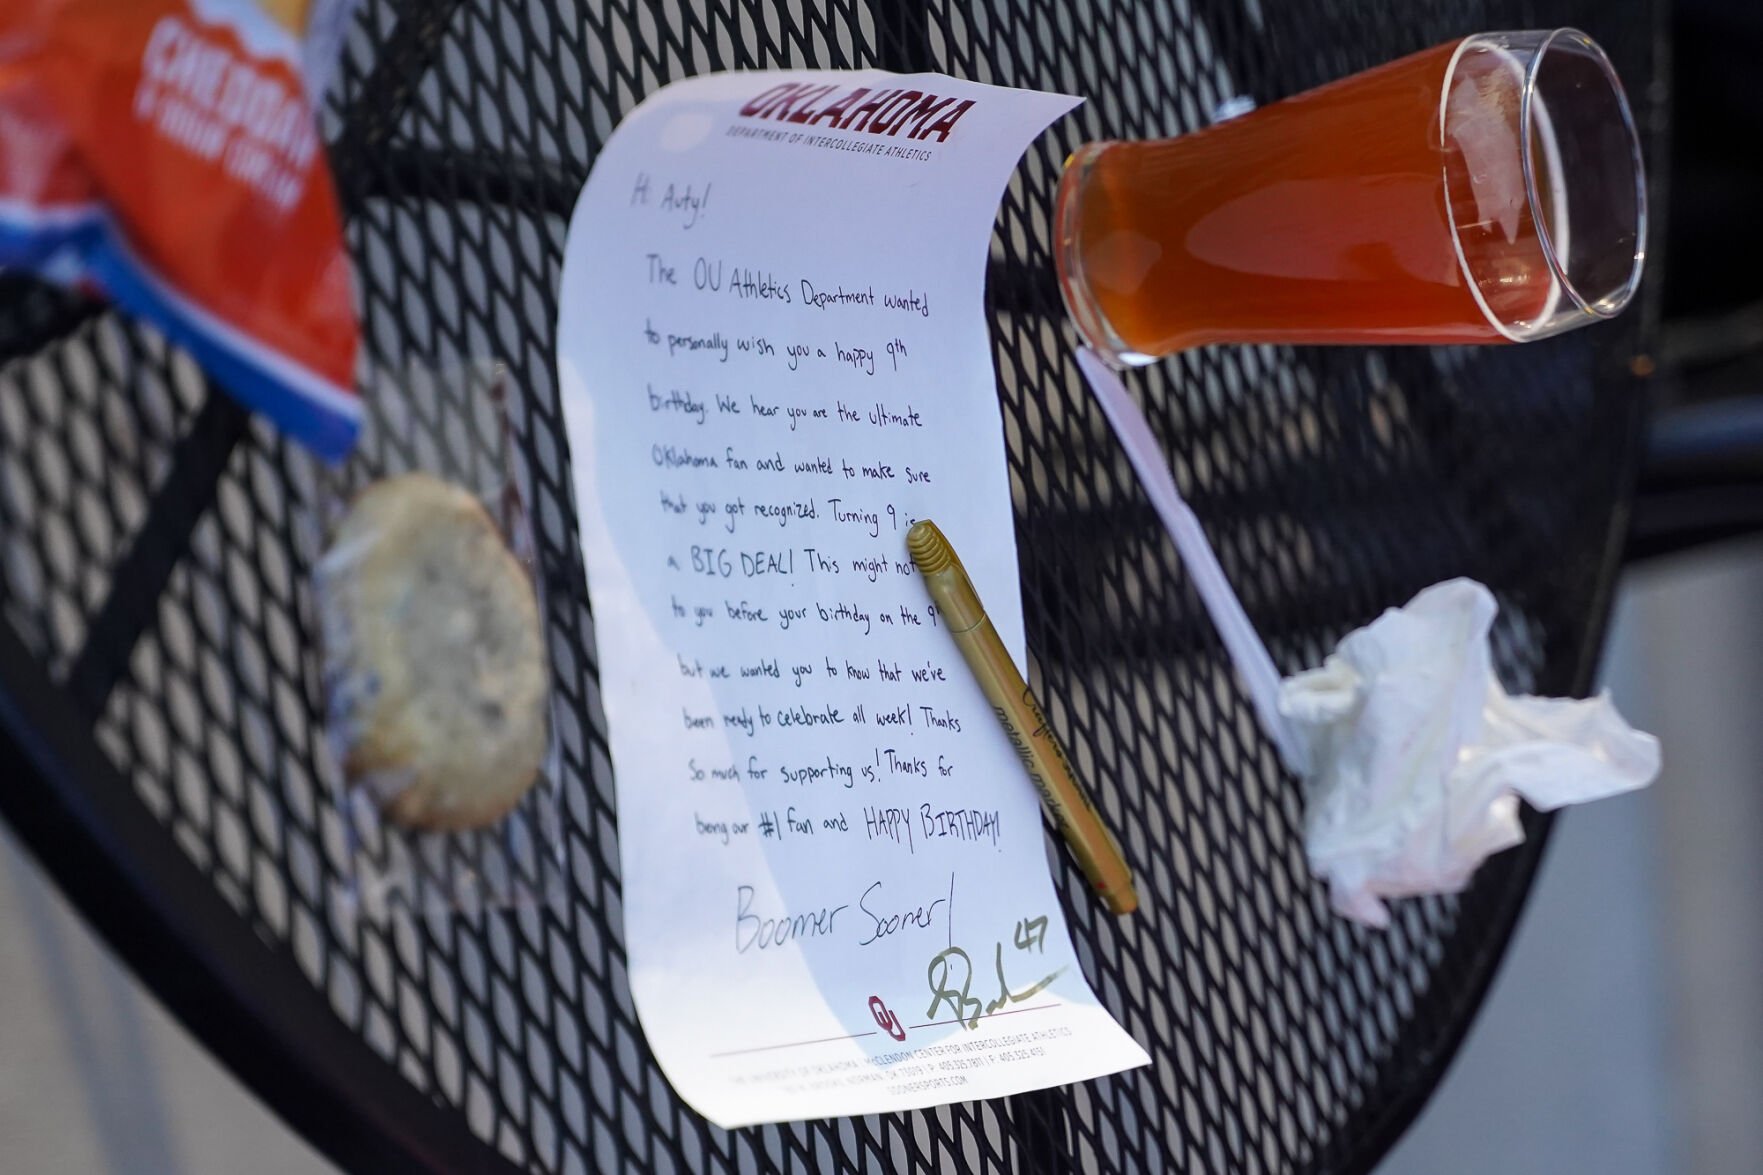 CHEDDAR
& SOUR CREAM
OKLAHOMA
DEPARTMENT OF INTERCOLLEGIATE ATHLETICS
Hi Auty!
The OU Athletics Department wanted
to personally wish you a happy 9th
birthday. We hear you are the ultimate
Oklahoma fan and wanted to make sure
that you got recognized. Turning 9 is
a BIG DEAL! This might not
to you before your birthday on the 9th
but we wanted you to know that we've
been ready to celebrate all week! Thanks
so much for supporting us! Thanks for
being our #1 fan and HAPPY BIRTHDAY!
Boomer Sooner!
47
OU
THE UNIVERSITY OF OKLAHOMA | MCCLENDON CENTER FOR INTERCOLLEGIATE ATHLETICS
NORMAN, OK 73019 | P: 405.325.7817 | F: 405.325.4151
SOONERSPORTS.COM
Craftsmart
metallic medium